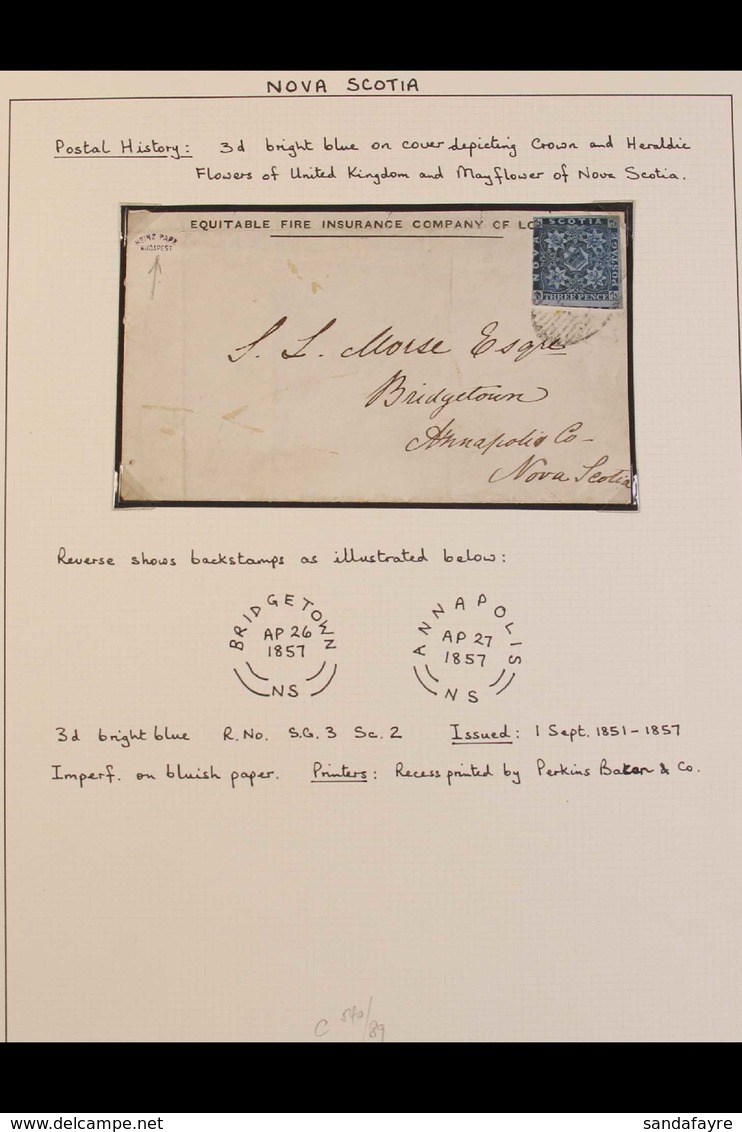 NOVA SCOTIA
Postal History: 3d bright blue on cover depicting Crown and Heraldic
Flowers of United Kingdom and Mayflower of Nova Scotia.
EQUITABLE FIRE INSURANCE COMPANY OF LO
BUDAPEST
NOVA SCOTIA POSTAGE
THREE PENCE
S. L. Morse Esqre
Bridgetown
Annapolis Co-
Nova Scotia
Reverse shows backstamps as illustrated below:
BRIDGETOWN
AP 26
1857
NS
ANNAPOLIS
AP 27
1857
NS
3d bright blue R.No. S.G. 3 Sc. 2 Issued: 1 Sept. 1851-1857
Imperf. on bluish paper. Printers: Recess printed by Perkins Bacon & Co.
C 540/89
delcampe.net
sandafayre